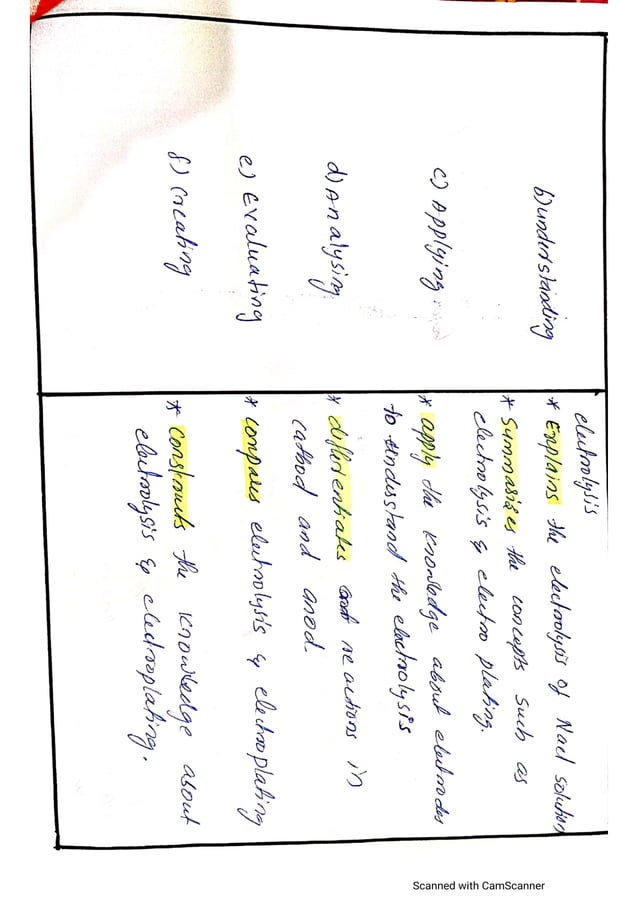 electrolysis
b) understanding
* Explains the electrolysis of Nacl solution
* Summarizes the concepts such as
electrolysis & electro plating.
c) Applying
* apply the knowledge about electrodes
to understand the electrolysis
d) Analysing
* differentiates reactions in
cathod and anod.
e) Evaluating
* compares electrolysis & electroplating
f) Creating
* constructs the knowledge about
electrolysis & electroplating.
Scanned with CamScanner